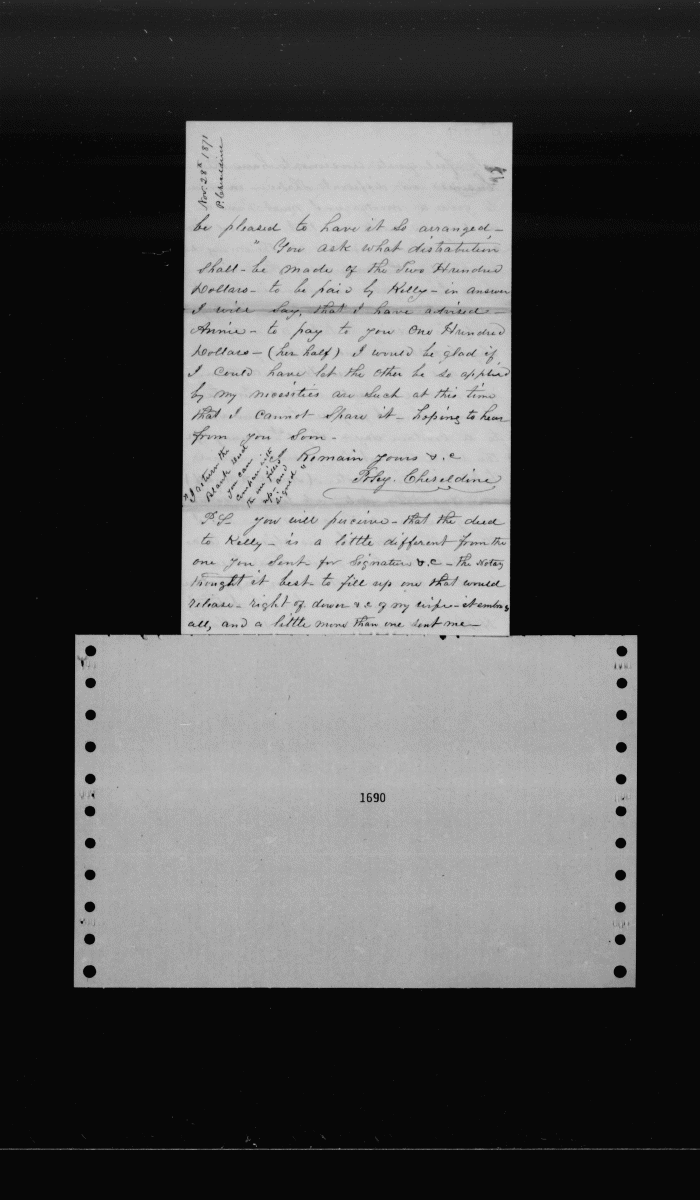 Nov. 28th 1871
P. Cheseldine
be pleased to have it so arranged —
" You ask what distribution
shall - be made of the Two Hundred
Dollars - to be paid by Kelly - in answer
I will say, that I have advised -
Annie - to pay to you One Hundred
Dollars - (her half) I would be glad if
I could have let the other be so applied
by my necessities are such at this time
that I cannot spare it - hoping to hear
from you soon -
I Remain yours &.c
Cheseldine
" I return the
Blank deed
you can
compare with
the one filled
up - and
signed "
P.S. you will perceive - that the deed
to Kelly - is a little different from the
one you sent for signatures &.c - the Notary
thought it best - to fill up one that would
release - right of dower &.c of my wife - it embrs
all, and a little more than one sent me —
1690